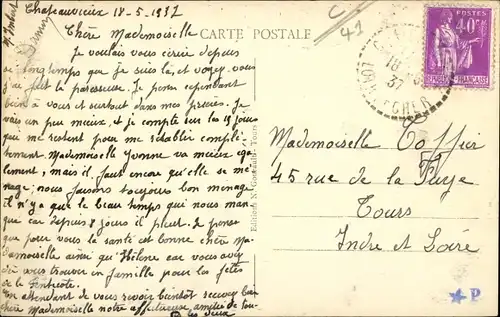 Chateauvieux 18-5-1937
Chère Mademoiselle
Je voulais vous écrire depuis
si longtemps que je suis là, et voyez vous
j'ai fait la paresseuse. Je pense cependant
bien à vous et surtout dans mes prières. Je
vais un peu mieux, et compte sur les 15 jours
qui me restent pour me rétablir complè-
tement. Mademoiselle Yvonne va mieux éga-
lement, mais il faut encore qu'elle se mé-
nage; nous faisons toujours bon ménage
Il n'y a que le beau temps qui nous man-
que car depuis 8 jours il pleut. Je pense
que pour vous la santé est bonne chère Ma-
demoiselle ainsi qu'Hélène car vous avez
dû vous trouver en famille pour les fêtes
de la Pentecôte.
En attendant de vous revoir bientôt recevez bien
chère Mademoiselle notre affectueuse amitié de tou-
tes deux
CARTE POSTALE
41
POSTES
40c
REPUBLIQUE FRANÇAISE
18
37
LOIR
CHER
Tours
Mademoiselle
45 rue de la
Tours
Indre et Loire
P